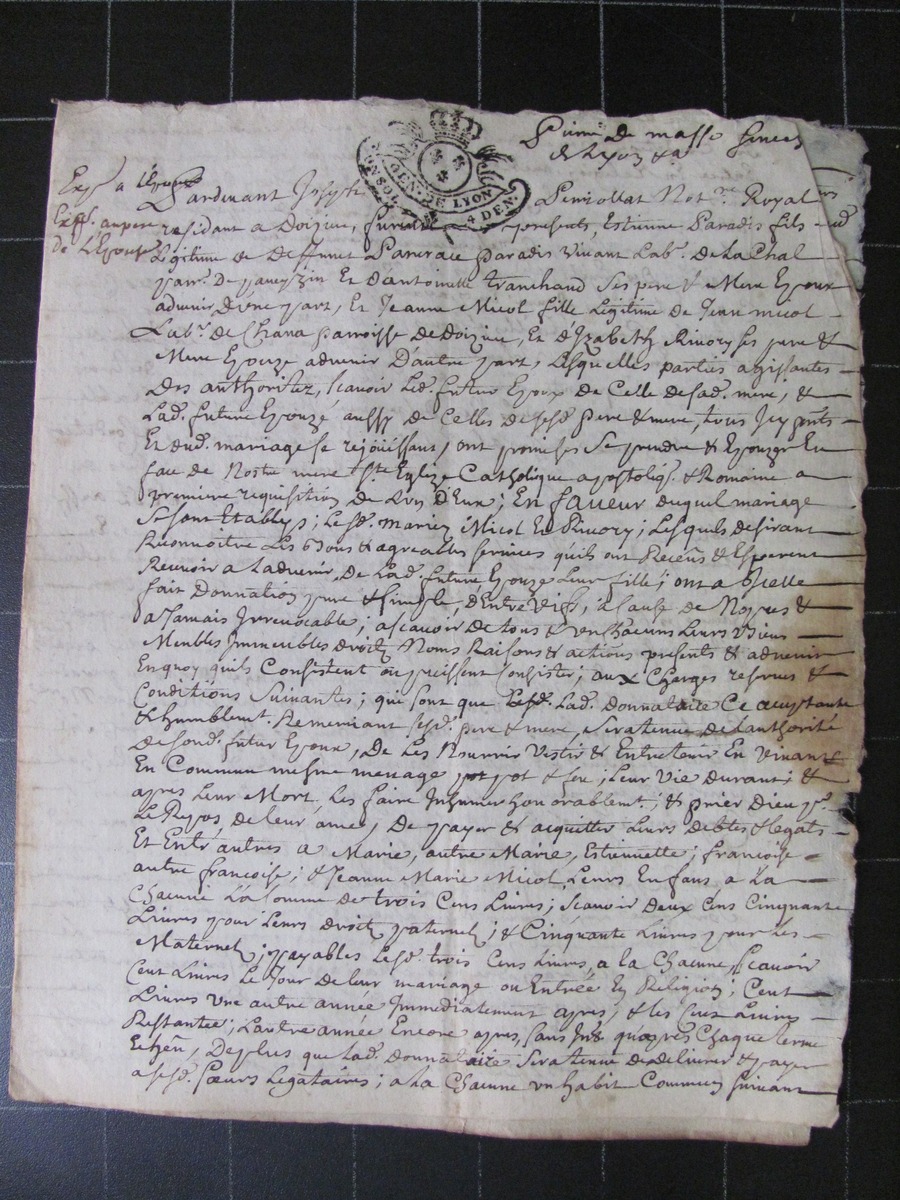 de Lyon &a
GEN. DE LYON
4 DEN.
Exp.é a l'Epouse
Exp.é au pere
de L'Epouse
Pardevant Joseph Perriollat Not.re Royal
residant a Doizieu, furent presents, Estienne Paradis fils
Légitime de deffunct Pancrace Paradis vivant Lab.r De La Chal
parr. De et d'antoinette tranchand ses pere & Mere Epoux
advenir, d'une part, Et Jeanne Nicol fille Légitime de Jean Nicol
Lab.r de Chana parroisse de Doizieu, Et d'Izabeth Rivory ses pere &
Mere Epouze advenir D'autre part, Lesquelles parties agissantes
Des authoritez, scavoir Led. futur Epoux de Celle de sad. mere, &
Lad. future Epouze aussy de Celles de sesd. pere & mere, tous Icy pnts
Et dud. mariage se rejoüissans, ont promis se prendre & Epouzer En
face de Nostre mere s.te Eglize Catholique apostoliq. & Romaine a
premiere requisition de L'un D'Eux; En faveur duquel mariage
se sont Etablys; lesd. mariez Nicol Et Rivory; Lesquels desirant
Reconnoitre Les bons & agreables services quils ont Receus & Esperent
Recevoir a L'advenir, De Lad. future Epouze Leur fille; ont a Icelle
fait Donnation pure & simple, d'Entre Vifs, a Cause de Nopces &
a Jamais Irrevocable; a scavoir De tous & un Chacuns Leurs Biens
Meubles Immeubles droits Noms Raisons & actions presents & advenir
En quoy quils Consistent ou puissent Consister; aux Charges reserves &
Conditions Suivantes; qui sont que Lad. donnataire Ce acceptante
& humblem.t Remerciant sesd. pere & mere, Sera tenue de L'authorité
De sond. futur Epoux, De Les Nourrir Vestir & Entretenir En vivant
En Commun mesme menage pot & feu; Leur vie durant; &
apres Leur Mort Les faire Inhumer honorablem.t; & prier Dieu p.r
Le Repos de leur ames, De payer & acquitter Leurs debtes & legats
Et Entr'autres a Marie, autre Marie, Estiennette; francoise
autre francoise; & Jeanne Marie Nicol Leurs Enfans, a La
Chacune La somme de trois Cens Livres; scavoir deux Cens Cinquante
Livres pour Leurs droits paternel; & Cinquante Livres pour Les
Maternel; payables Lesd. trois Cens Livres, a la Chacune, scavoir
Cent Livres Le Jour de leur mariage ou Entrée En Religion; Cent
Livres une autre année Immediatement apres, & les Cent Livres
Restantes; L'autre année Encore apres, sans qu'apres Chaque terme
Echeu, De plus que Lad. donnataire Sera tenue De delivrer & payer
a sesd. sœurs Legataires; a La Chacune un habit Commun suivant